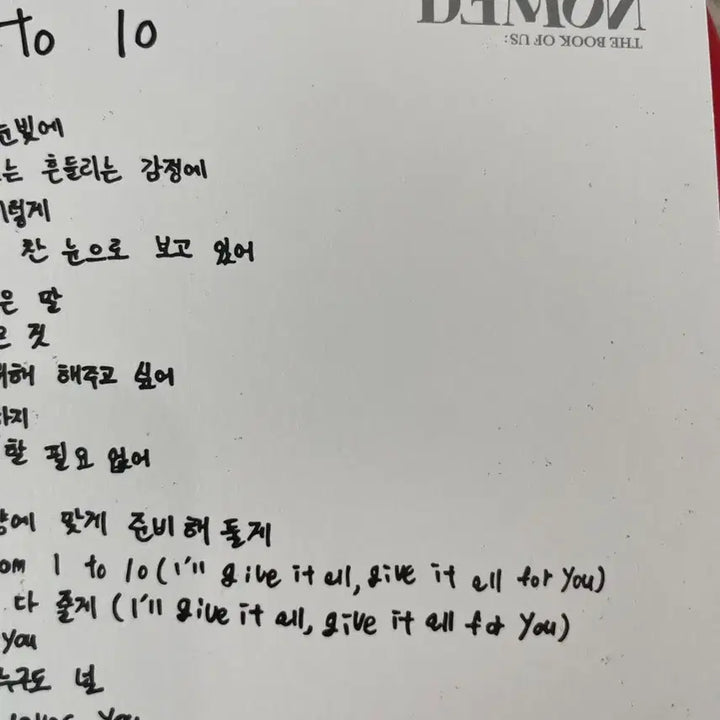 to 10
DEMON
THE BOOK OF US:
눈빛에
는 흔들리는 감정에
이렇게
찬 눈으로 보고 있어
은 말
은 것
위해 해주고 싶어
하지
할 필요 없어
에 맞게 준비해 둘게
om 1 to 10 (I'll give it all, give it all for you)
다 줄게 (I'll give it all, give it all for you)
you
누구도 널
you